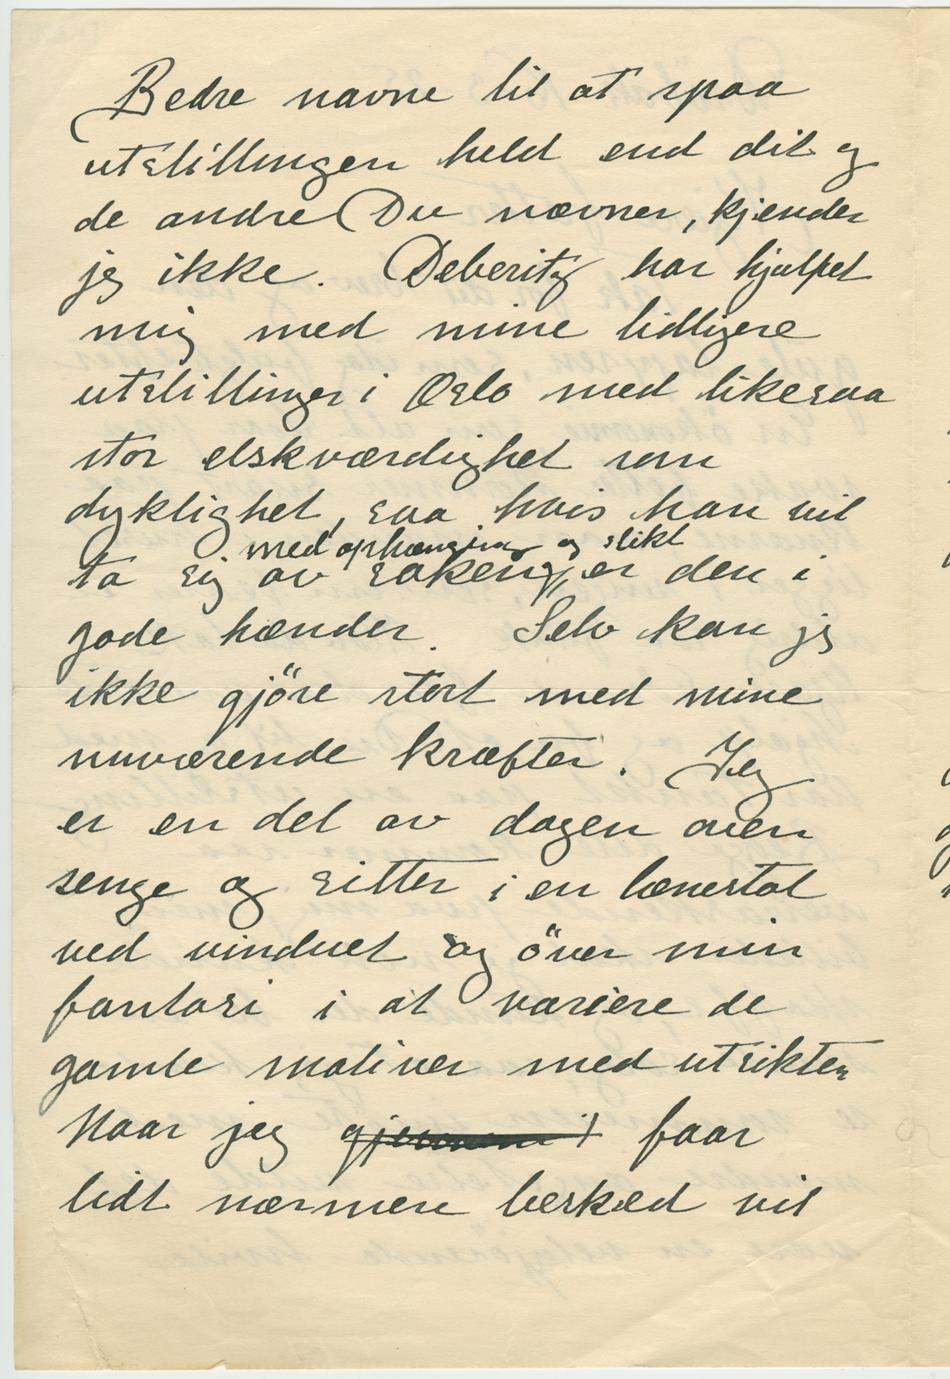 Bedre navne til at spaa
utstillingen held end dit og
de andre Du nævner, kjender
jeg ikke. Deberitz har hjulpet
mig med mine tidligere
utstillinger i Oslo med likesaa
stor elskværdighet som
dyktighet, saa hvis han vil
med ophænging og slikt
ta sig av saken, er den i
gode hænder. Selv kan jeg
ikke gjöre stort med mine
nuværende kræfter. Jeg
er en del av dagen oven
senge og sitter i en lænestol
ved vinduet og över min
fantasi i at variere de
gamle motiver med utsikten
Naar jeg faar
lidt nærmere besked vil